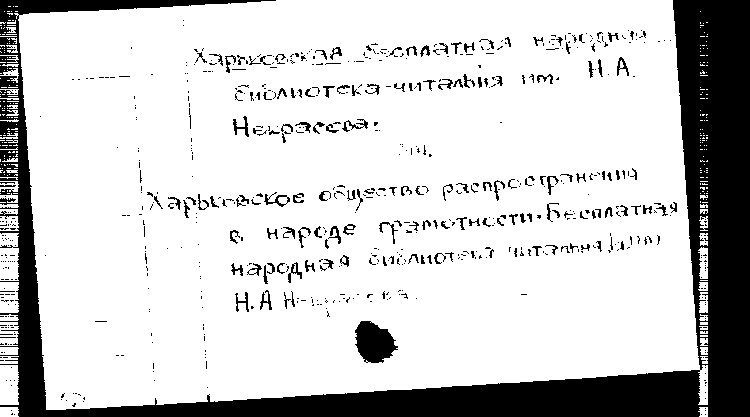 Харьковская бесплатная народная
библиотека-читальня им. Н.А.
Некрасова.
см.
Харьковское общество распространения
в народе грамотности. Бесплатная
народная библиотека читальня им
Н.А Некрасова.